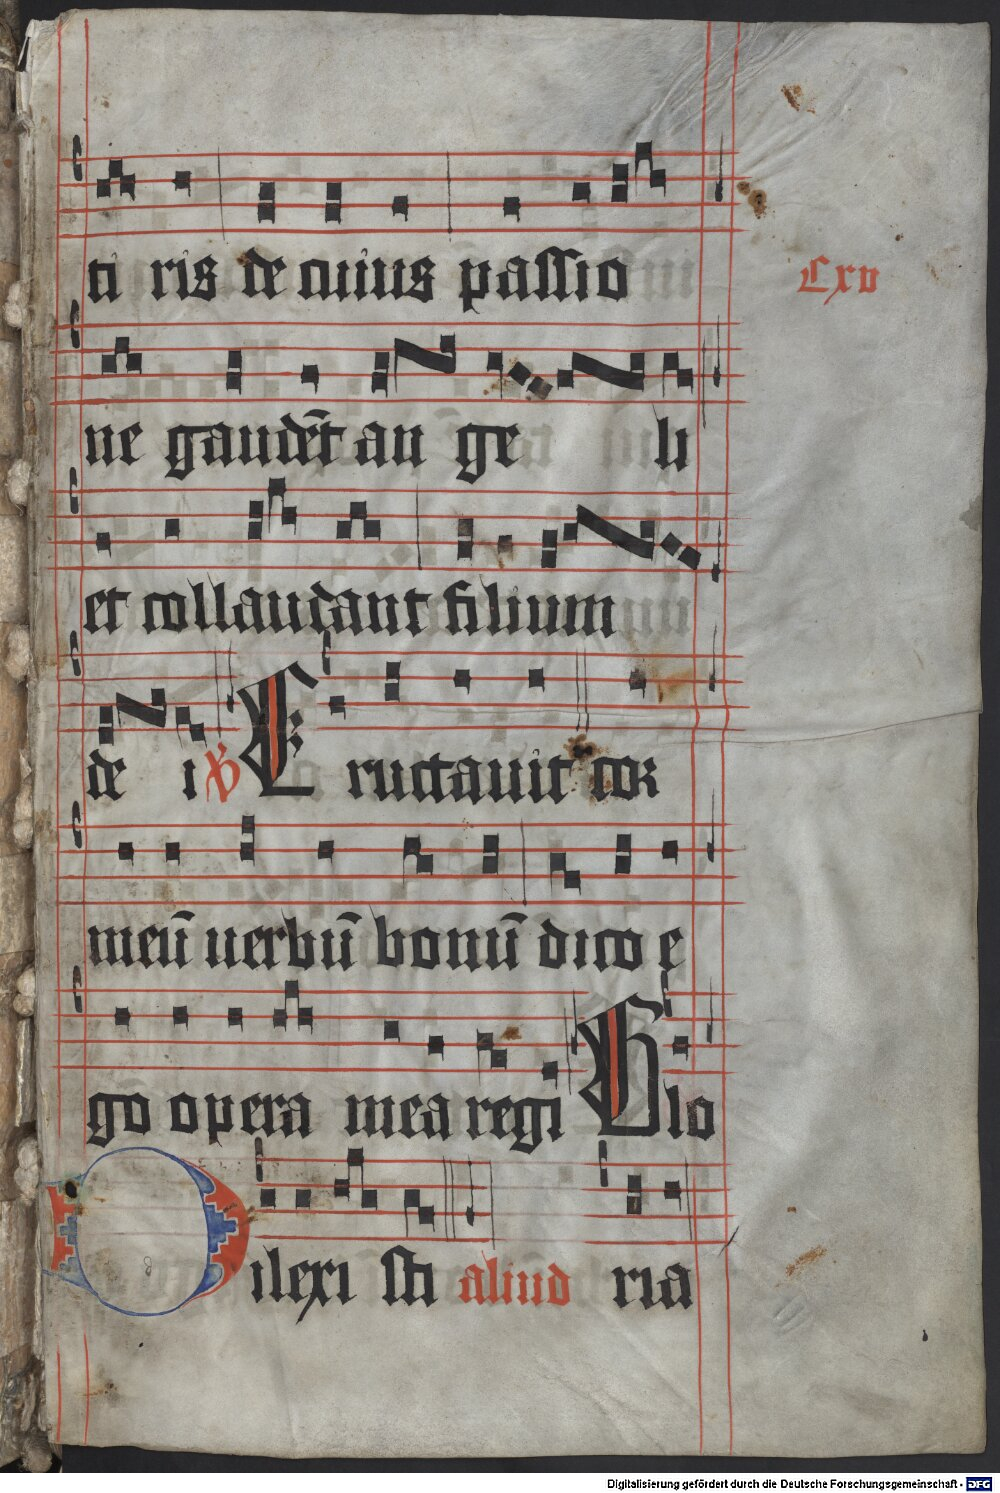 ti ris de cuius passio
Cxv
ne gaudēt an ge li
et collaudant filium
de i ℣ E ructauit cor
meū uerbū bonū dico e
go opera mea regi Glo
Dilexi sti aliud ria
Digitalisierung gefördert durch die Deutsche Forschungsgemeinschaft - DFG